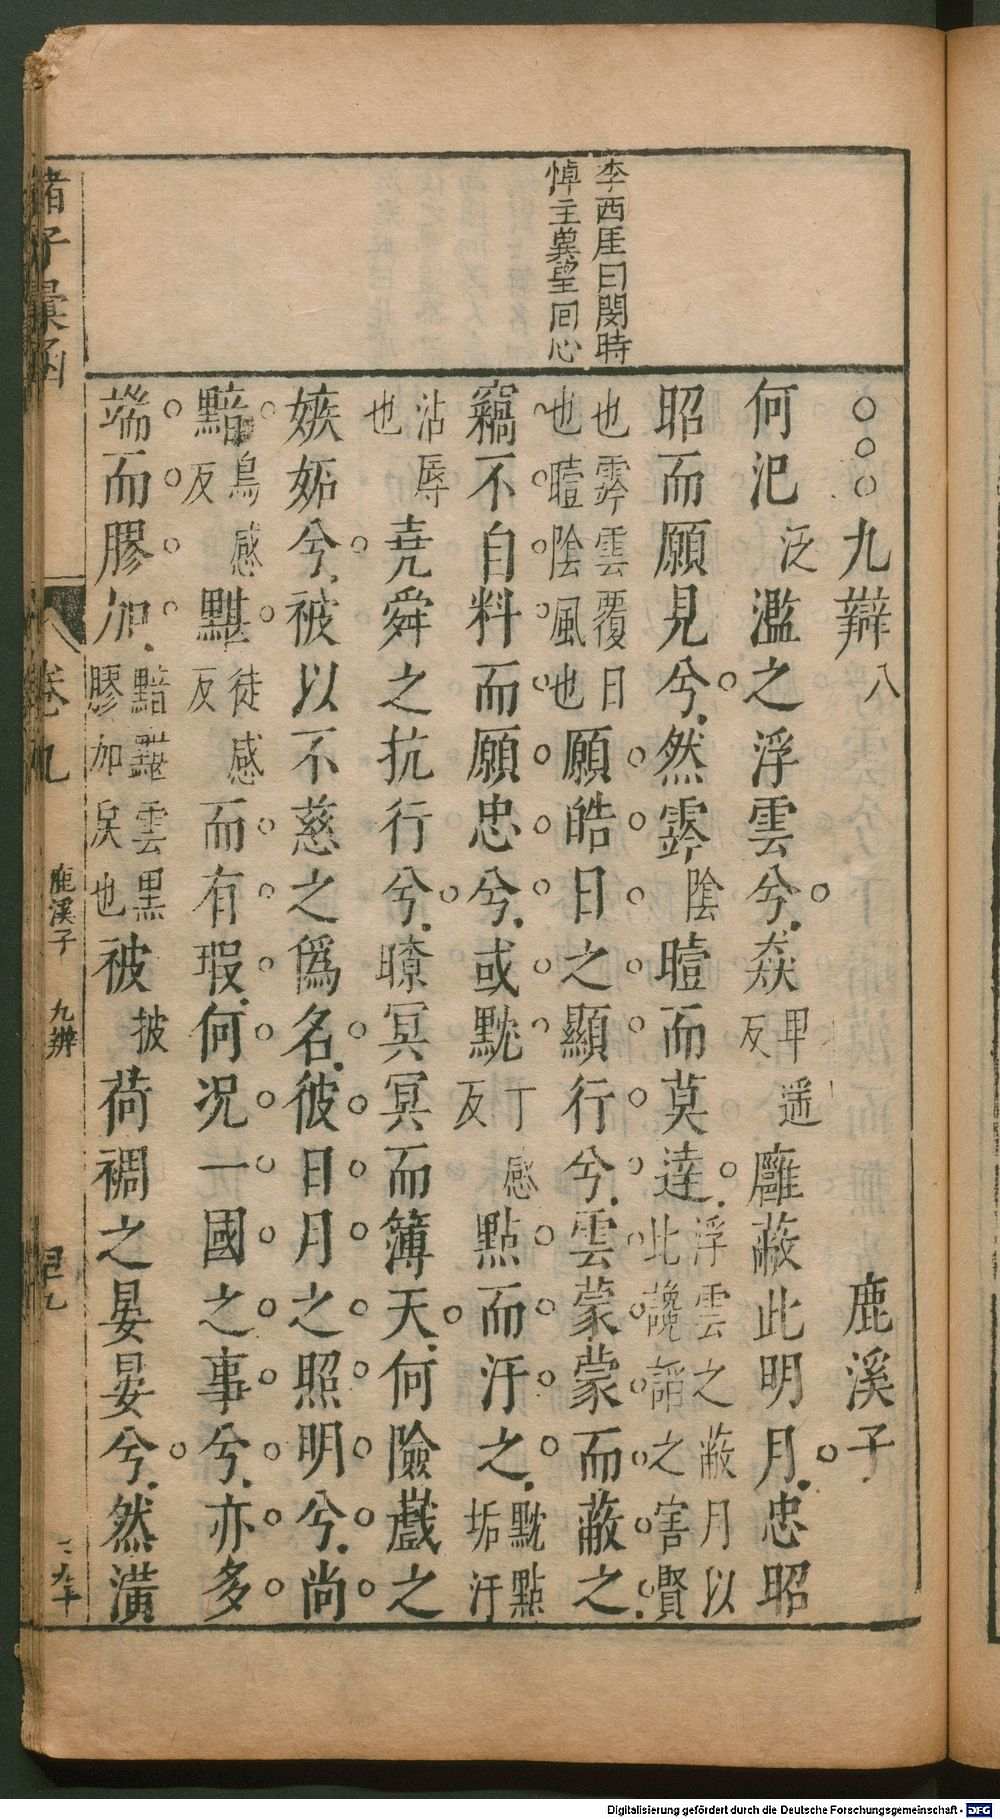 李西厓曰閔時
悼主冀望回心
○○○九辯八 鹿溪子
何汜泛濫之浮雲兮猋甲遥反廱蔽此明月忠昭
昭而願見兮然霠陰曀而莫達浮雲之蔽月以此讒謟之害賢
也霠雲覆日也曀陰風也願皓日之顯行兮雲蒙蒙而蔽之
竊不自料而願忠兮或黕丁感反點而汙之黕點垢汙
沾辱也堯舜之抗行兮瞭冥冥而簿天何險戲之
嫉妬兮被以不慈之僞名彼日月之照明兮尚
黯烏感反黮徒感反而有瑕何况一國之事兮亦多
端而膠加黯黮雲黑膠加戾也被披荷裯之晏晏兮然潢
諸子彙函
卷九
鹿溪子
九辨
Digitalisierung gefördert durch die Deutsche Forschungsgemeinschaft - DFG